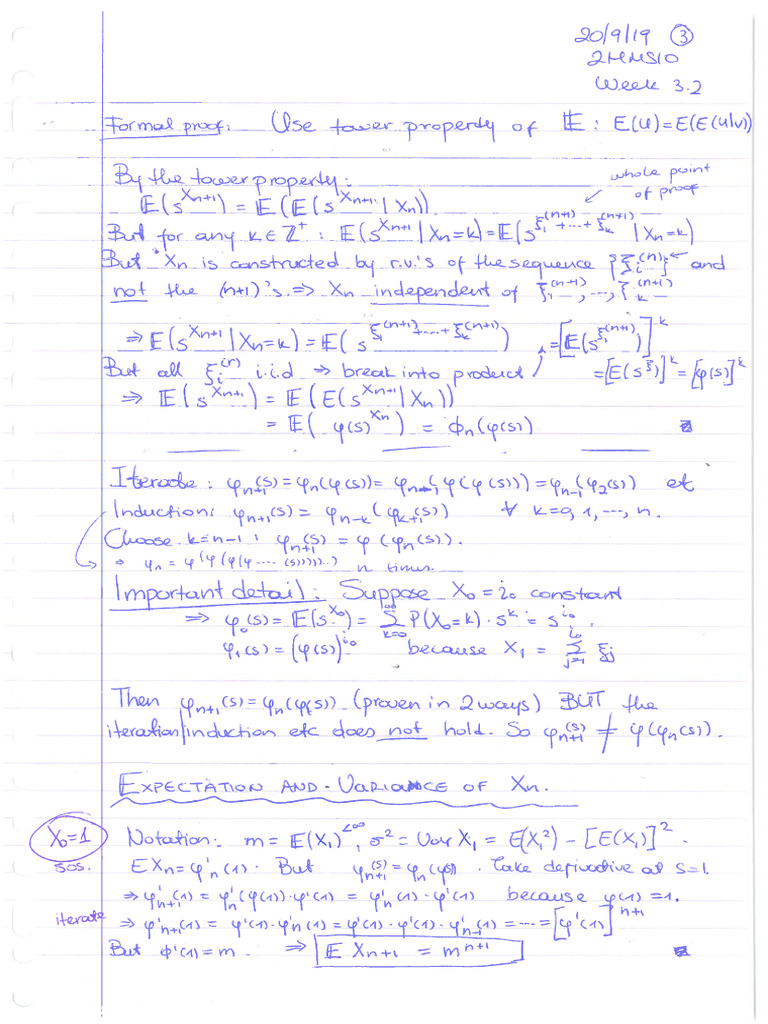 20/9/19 ③
2MMS10
Week 3.2
Formal proof: Use tower property of 𝔼: E(U)=E(E(U|V))
By the tower property:
whole point of proof
𝔼(s^{X_{n+1}}) = 𝔼(𝔼(s^{X_{n+1}} | X_n)).
But for any k∈ℤ⁺: 𝔼(s^{X_{n+1}} | X_n=k) = 𝔼(s^{ξ_1^{(n+1)}+···+ξ_k^{(n+1)}} | X_n=k)
But X_n is constructed by r.v.'s of the sequence {ξ_i^{(n)}} and
not the (n+1)'s ⇒ X_n independent of ξ_1^{(n+1)}, ..., ξ_k^{(n+1)}
⇒ 𝔼(s^{X_{n+1}} | X_n=k) = 𝔼(s^{ξ_1^{(n+1)}+···+ξ_k^{(n+1)}}) = [𝔼(s^{ξ_1^{(n+1)}})]^k
But all ξ_i^{(n)} i.i.d → break into product = [E(s^ξ)]^k = [φ(s)]^k
⇒ 𝔼(s^{X_{n+1}}) = 𝔼(E(s^{X_{n+1}} | X_n))
= 𝔼(φ(s)^{X_n}) = ϕ_n(φ(s))
Iterate: φ_{n+1}(s) = φ_n(φ(s)) = φ_{n-1}(φ(φ(s))) = φ_{n-1}(φ_2(s)) etc
Induction: φ_{n+1}(s) = φ_{n-k}(φ_{k+1}(s)) ∀ k=0,1,...,n.
Choose k=n-1: φ_{n+1}(s) = φ(φ_n(s)).
⇒ φ_n = φ(φ(φ(φ....(s))))..) n times.
Important detail: Suppose X_0 = i_0 constant
⇒ φ_0(s) = 𝔼(s^{X_0}) = ∑_{k=0}^∞ P(X_0=k)·s^k = s^{i_0}.
φ_1(s) = (φ(s))^{i_0} because X_1 = ∑_{j=1}^{i_0} ξ_j
Then φ_{n+1}(s) = φ_n(φ(s)) (proven in 2 ways) BUT the
iteration/induction etc does not hold. So φ_{n+1}(s) ≠ φ(φ_n(s)).
EXPECTATION AND VARIANCE OF X_n.
X_0=1 Notation: m = 𝔼(X_1)^{<∞}, σ² = Var X_1 = E(X_1²) − [E(X_1)]².
sos. E X_n = φ'_n(1). But φ_{n+1}(s) = φ_n(φ(s)). Take derivative at s=1.
⇒ φ'_{n+1}(1) = φ'_n(φ(1))·φ'(1) = φ'_n(1)·φ'(1) because φ(1)=1.
iterate ⇒ φ'_{n+1}(1) = φ'(1)·φ'_n(1) = φ'(1)·φ'(1)·φ'_{n-1}(1) = ··· = [φ'(1)]^{n+1}
But ϕ'(1)=m. ⇒ 𝔼 X_{n+1} = m^{n+1}